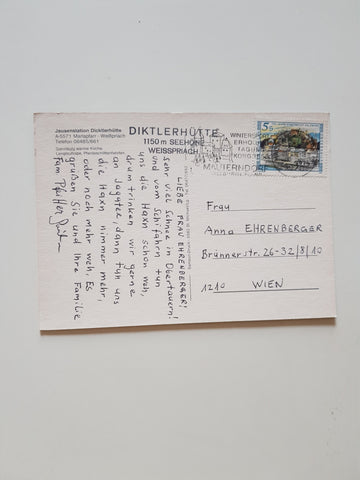 Jausenstation Dicktlerhütte
A-5571 Mariapfarr - Weißpriach
Telefon 06483/661
Ganztägig warme Küche
DIKTLERHÜTTE
1150 m SEEHÖHE
WEISSPRIACH
LIEBE FRAU EHRENBERGER!
Sehr viel Schnee in Obertauern!
Und vom Schifahren tun
uns die Haxn schon weh,
drum trinken wir gerne
an Jagatee, dann tun uns
die Haxn nimmer mehr,
oder noch mehr weh, Es
grüßen Sie und Ihre Familie
Fam.
5 S
WINTERSPORT
ERHOLUNG
TAGUNG
KONGRESS
MAUTERNDORF
Frau
Anna EHRENBERGER
Brünnerstr. 26-32/8/10
1210 WIEN